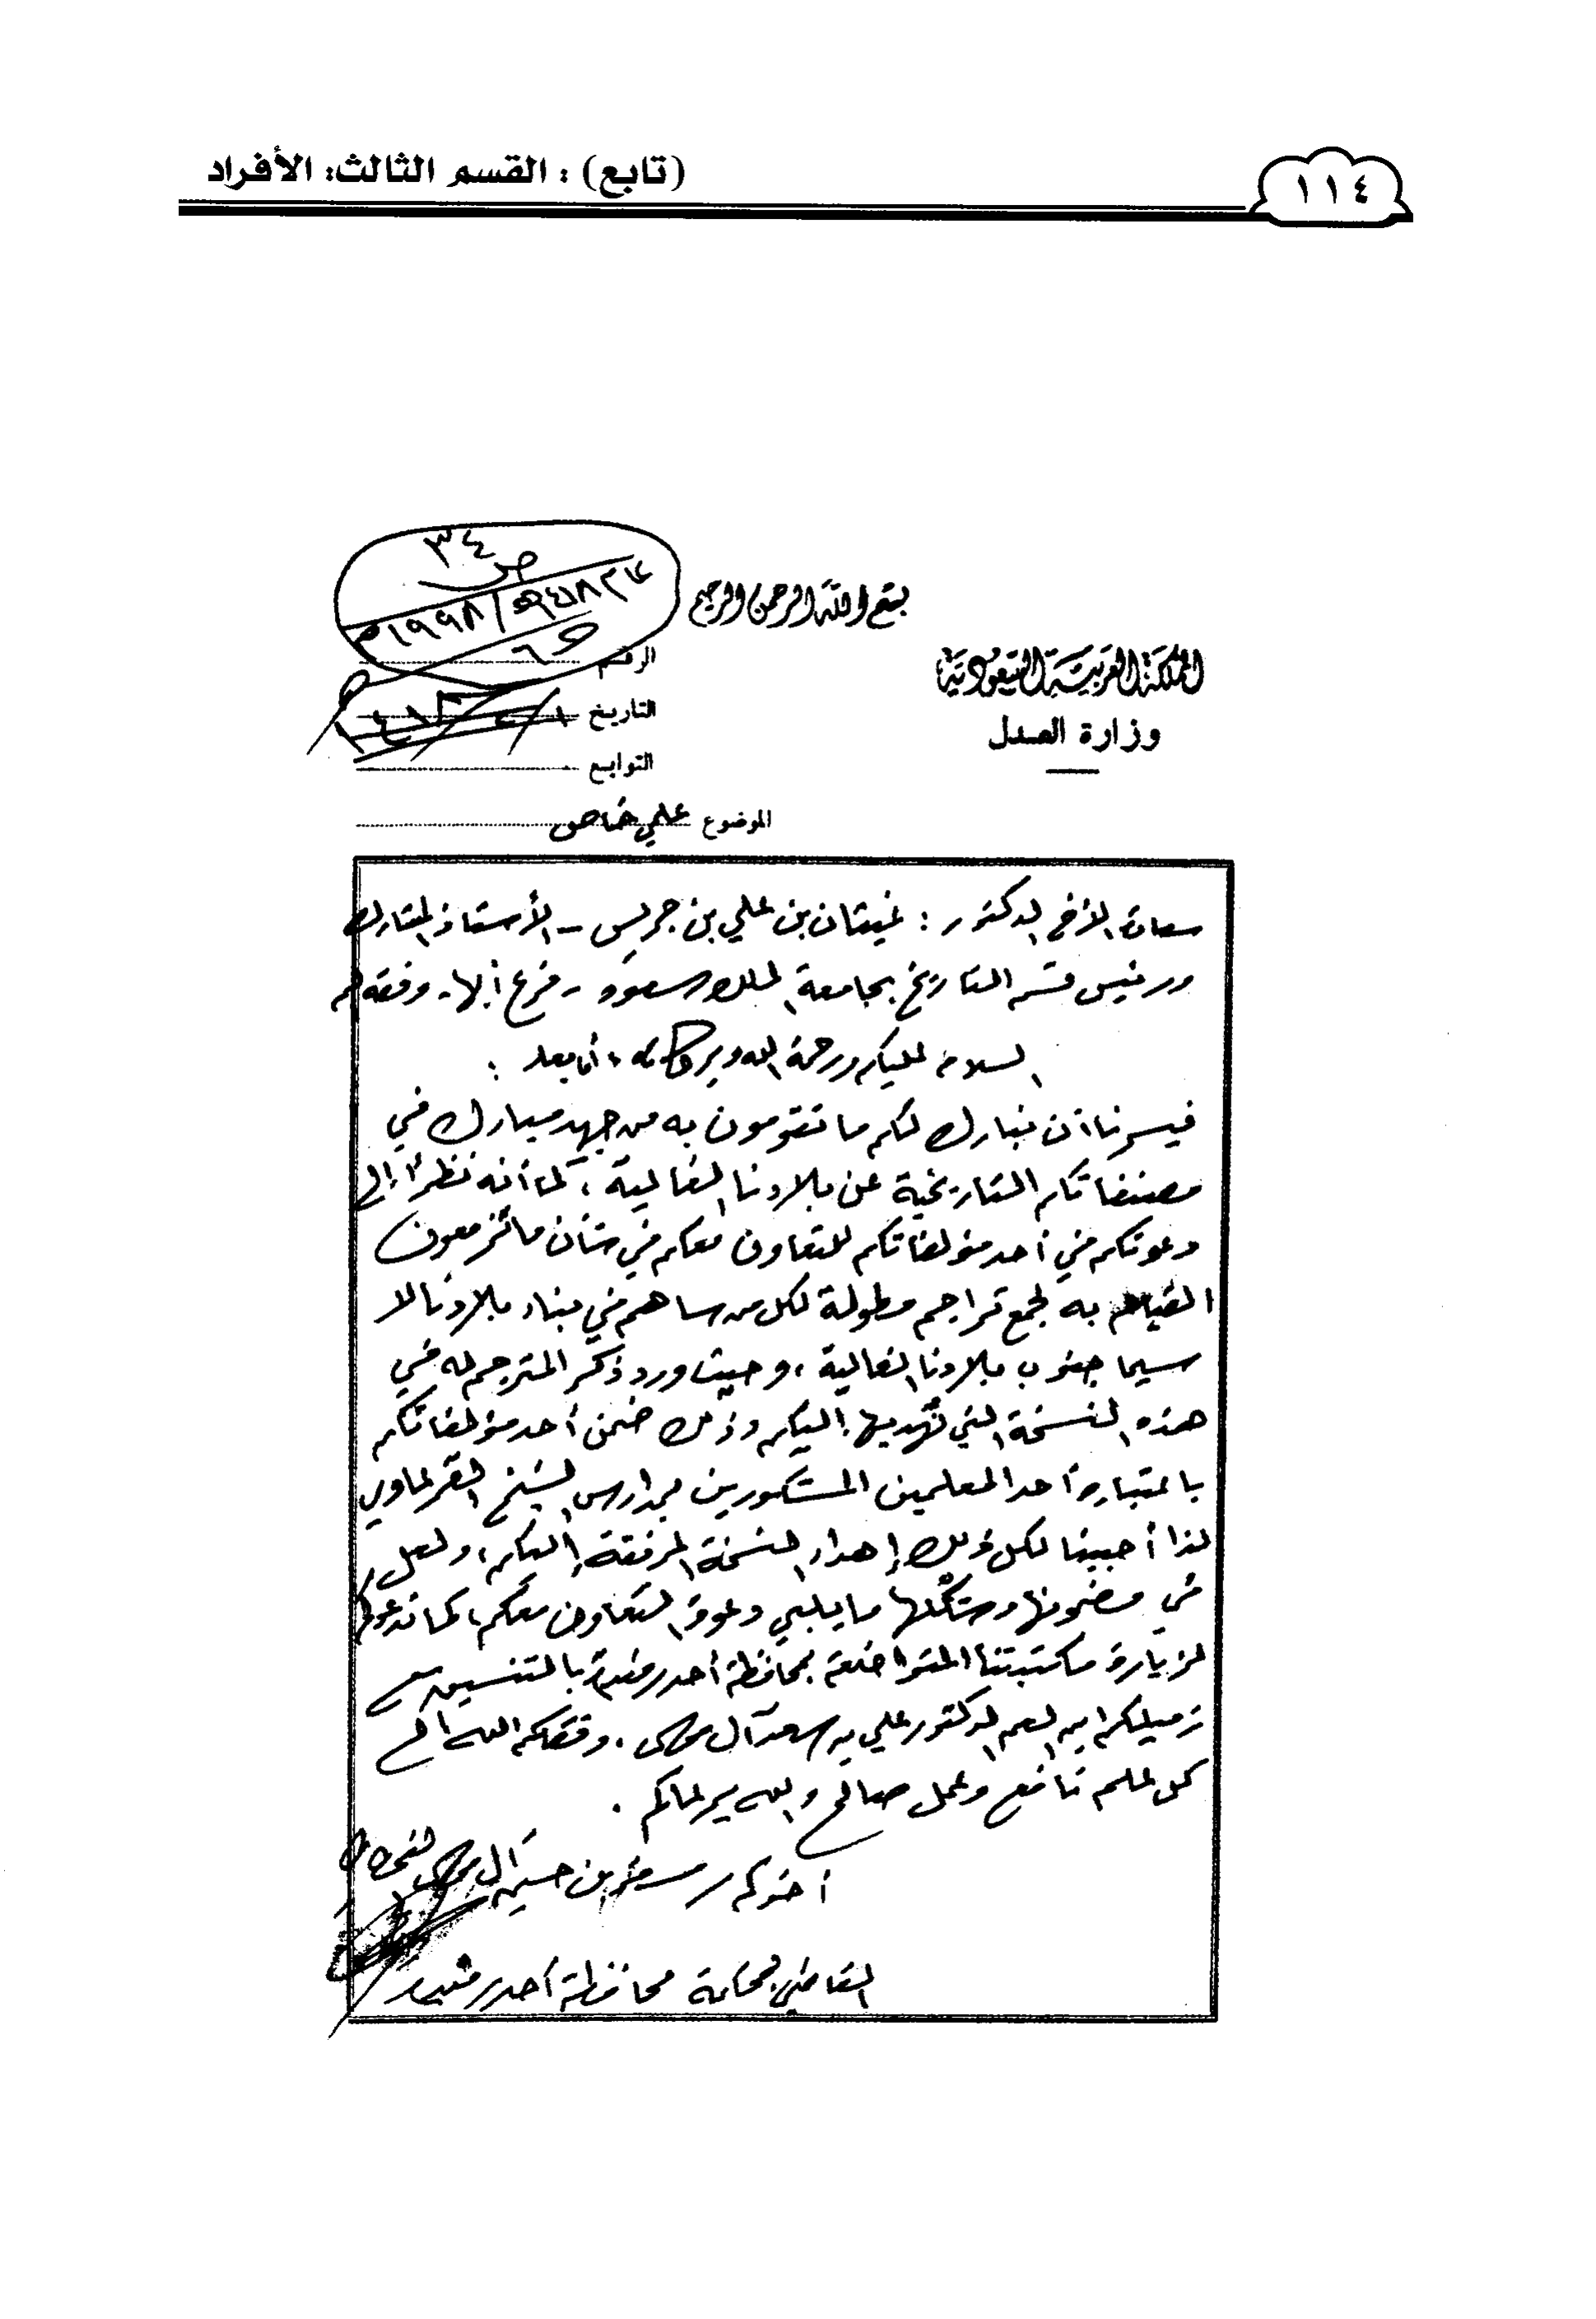 (تابع) : القسم الثالث: الأفراد
١١٤
٣٤
ص
١٩٩٨م
بسم الله الرحمن الرحيم
المملكة العربية السعودية
وزارة العدل
الرقم
التاريخ
التوابع
الموضوع علمي خاص
سعادة الأخ الدكتور : غيثان بن علي بن جريس - الأستاذ المشارك
ورئيس قسم التاريخ بجامعة الملك سعود - فرع أبها - وفقه الله
السلام عليكم ورحمة الله وبركاته ، أما بعد :
فيسرنا أن نبارك لكم ما تقومون به من جهد مبارك في
مصنفاتكم التاريخية عن بلادنا الغالية ، كما أنه نظراً إلى
دعوتكم في أحد مؤلفاتكم للتعاون معكم في شأن ما تزمعون
القيام به لجمع تراجم مطولة لكل من ساهم في بناء بلادنا لا
سيما جنوب بلادنا الغالية ، وحيث ورد ذكر المترجم له في
هذه النسخة التي نهديها إليكم وذلك ضمن أحد مؤلفاتكم
باعتباره أحد المعلمين المشكورين بمدارس الشيخ القرعاوي
لذا أحببنا لكل ذلك إهداء النسخة المرفقة إليكم ، ولعل
في مضمونها وشكلها ما يلبي دعوة التعاون معكم ، كما ندعوكم
لزيارة مكتبتنا المتواضعة بمحافظة أحد رفيدة بالتنسيق مع
زميلكم ابن العم الدكتور علي بن سعد آل . وفقكم الله إلى
كل علم نافع وعمل صالح والله يرعاكم .
أخوكم / مسفر بن حسين آل القحطاني
القاضي بمحكمة محافظة أحد رفيدة